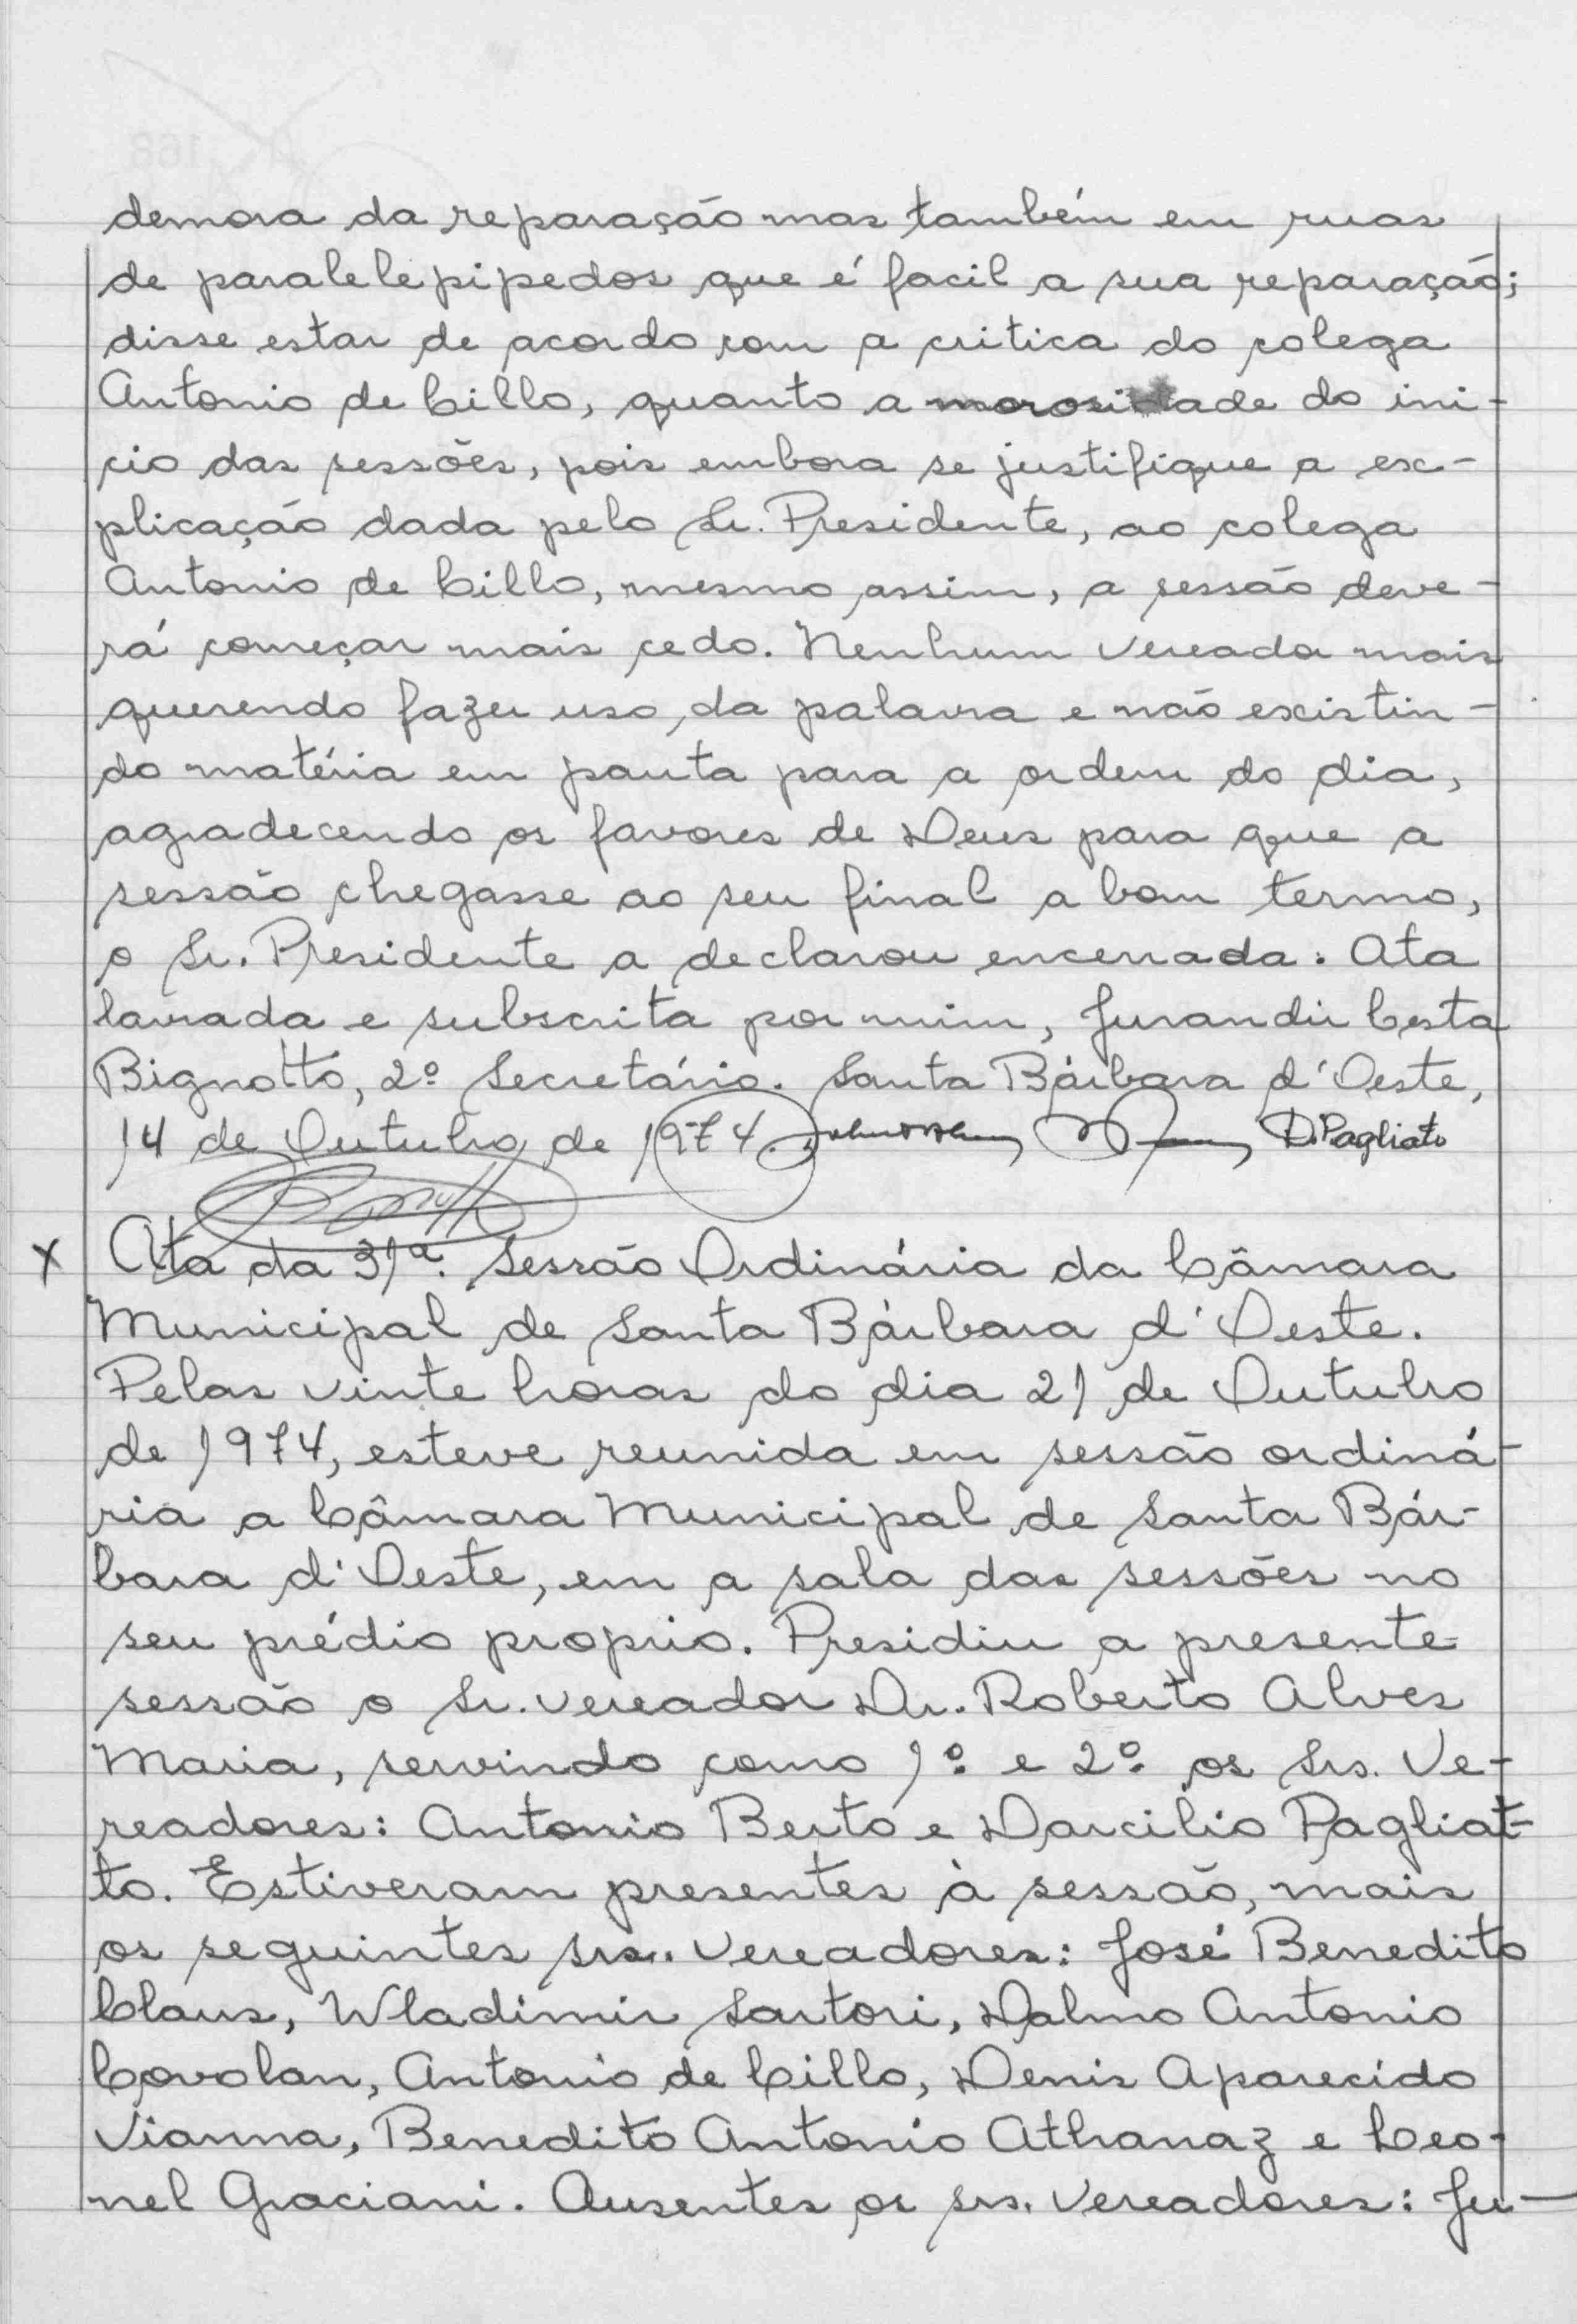 demora da reparação mas também em ruas
de paralelepipedos que é facil a sua reparação;
disse estar de acordo com a critica do colega
Antonio de Cillo, quanto a morosidade do ini-
cio das sessões, pois embora se justifique a ex-
plicação dada pelo Sr. Presidente, ao colega
Antonio de Cillo, mesmo assim, a sessão deve-
rá começar mais cedo. Nenhum Vereador mais
querendo fazer uso da palavra e não existin-
do matéria em pauta para a ordem do dia,
agradecendo os favores de Deus para que a
sessão chegasse ao seu final a bom termo,
o Sr. Presidente a declarou encerrada. Ata
lavrada e subscrita por mim, Jurandir Costa
Bignotto, 2º Secretário. Santa Bárbara d'Oeste,
14 de Outubro de 1974. D. Pagliato
X Ata da 31ª. Sessão Ordinária da Câmara
Municipal de Santa Bárbara d'Oeste.
Pelas vinte horas do dia 21 de Outubro
de 1974, esteve reunida em sessão ordiná-
ria a Câmara Municipal de Santa Bár-
bara d'Oeste, em a sala das sessões no
seu prédio proprio. Presidiu a presente
sessão o Sr. vereador Dr. Roberto Alves
Maria, servindo como 1º e 2º os Srs. Ve-
readores: Antonio Berto e Darcilio Pagliat-
to. Estiveram presentes à sessão, mais
os seguintes srs. Vereadores: José Benedito
Claus, Wladimir Sartori, Dalmo Antonio
Covolan, Antonio de Cillo, Denis Aparecido
Vianna, Benedito Antonio Athanaz e Leo-
nel Graciani. Ausentes os srs. Vereadores: Ju-